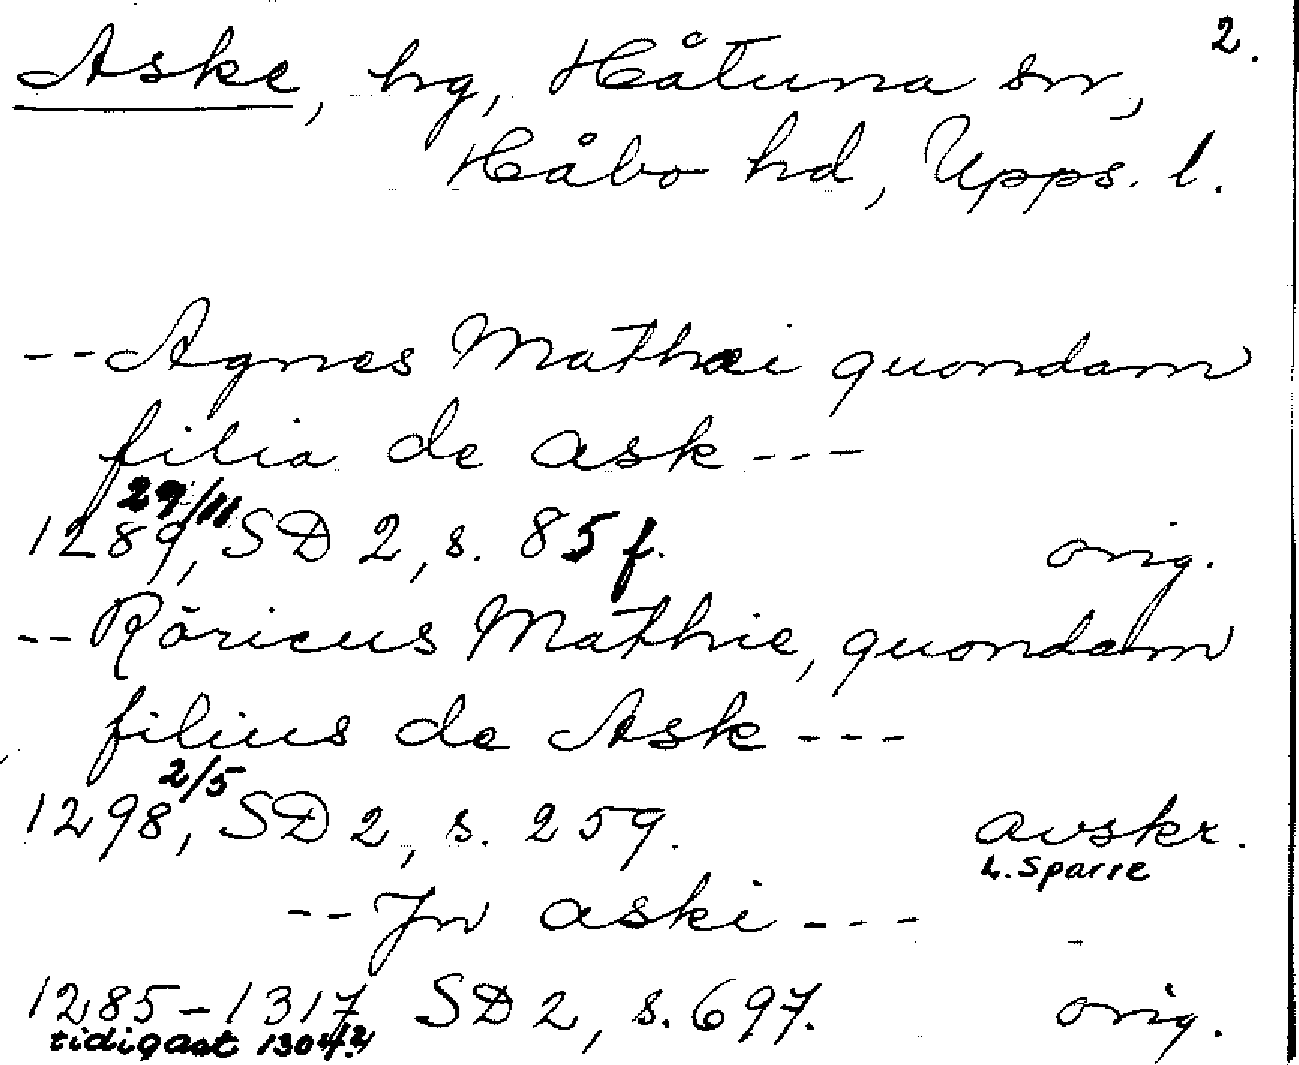 2.
Aske, hg, Håtuna sn,
Håbo hd, Upps. l.
-- Agnes Mathæi quondam
filia de ask ---
29/11
1289, SD 2, s. 85 f. orig.
-- Röricus Mathie, quondam
filius de Ask ---
2/5
1298, SD 2, s. 259. avskr.
L. Sparre
-- Jn aski ---
1285-1317 SD 2, s. 697. orig.
tidigast 1304